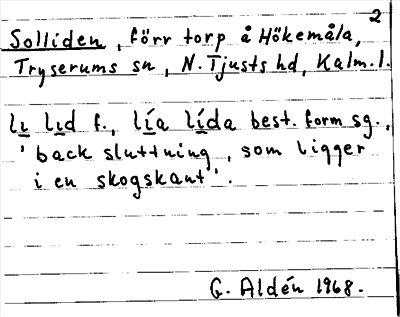 2
Solliden, förr torp å Hökemåla,
Tryserums sn, N. Tjusts hd, Kalm. l.
lı lıd f., lía lída best. form sg.,
'back sluttning, som ligger
i en skogskant'.
G. Aldén 1968.